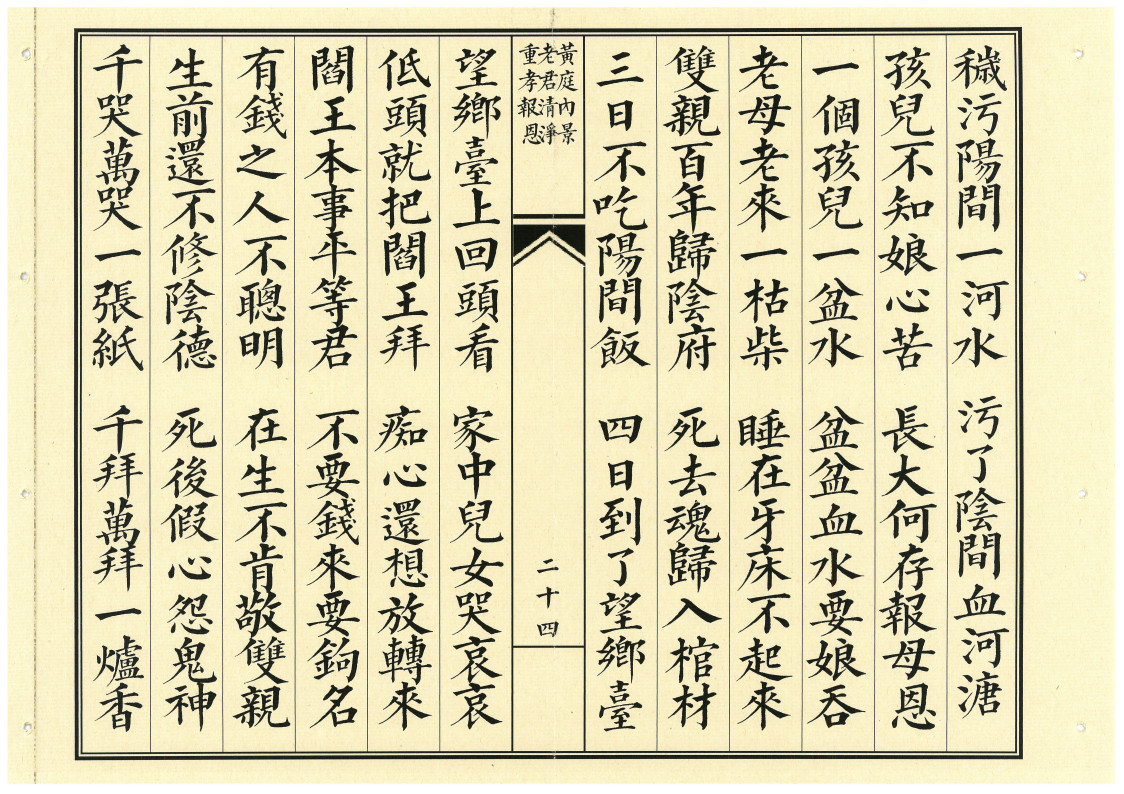 穢污陽間一河水 污了陰間血河溏
孩兒不知娘心苦 長大何存報母恩
一個孩兒一盆水 盆盆血水要娘吞
老母老來一枯柴 睡在牙床不起來
雙親百年歸陰府 死去魂歸入棺材
三日不吃陽間飯 四日到了望鄉臺
黃庭內景
老君清淨
重孝報恩
二十四
望鄉臺上回頭看 家中兒女哭哀哀
低頭就把閻王拜 痴心還想放轉來
閻王本事平等君 不要錢來要鉤名
有錢之人不聰明 在生不肯敬雙親
生前還不修陰德 死後假心怨鬼神
千哭萬哭一張紙 千拜萬拜一爐香